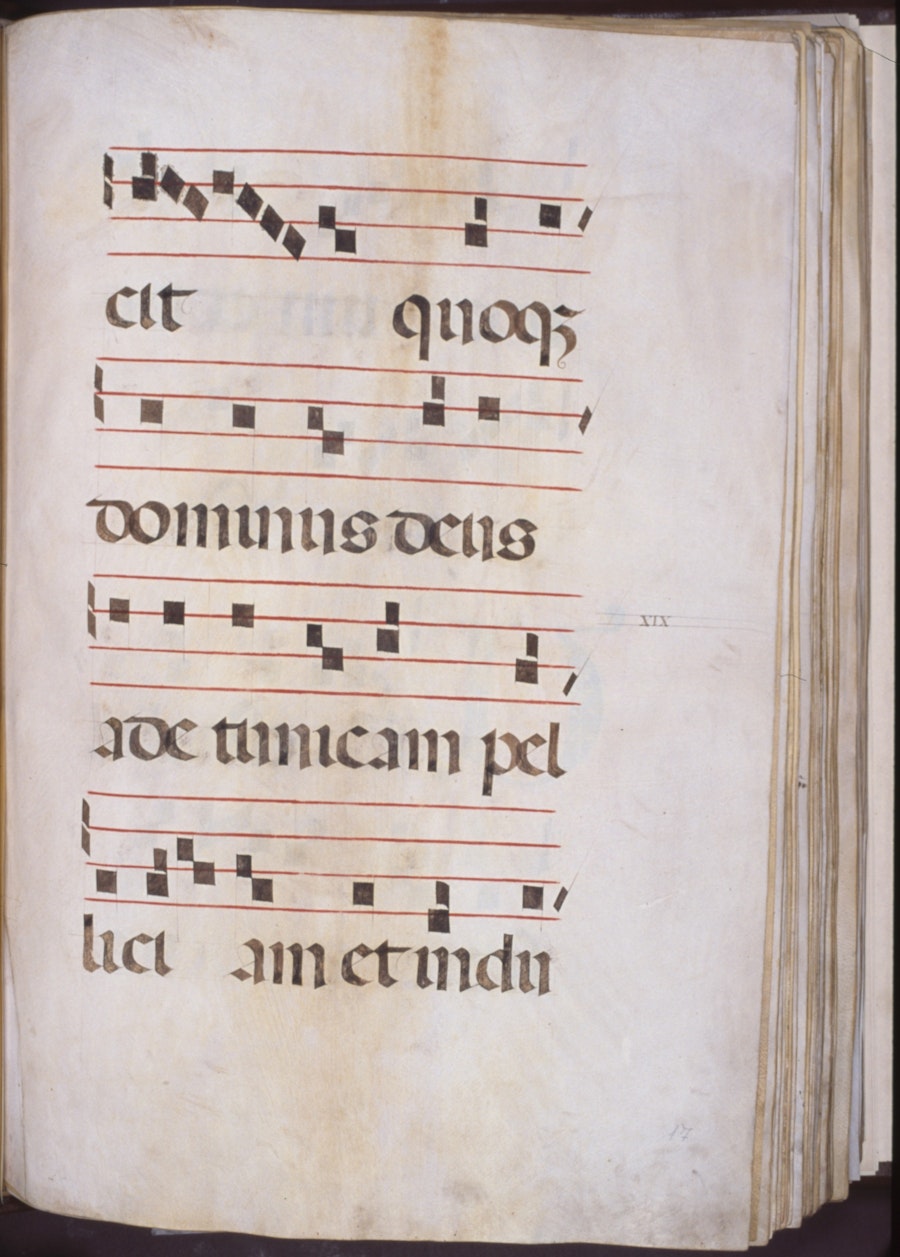 cit quoqꝫ
dominus deus
ade tunicam pel
XIX
lici am et indu
17